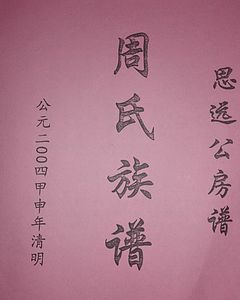 思远公房谱
周氏族谱
公元二〇〇四甲申年清明